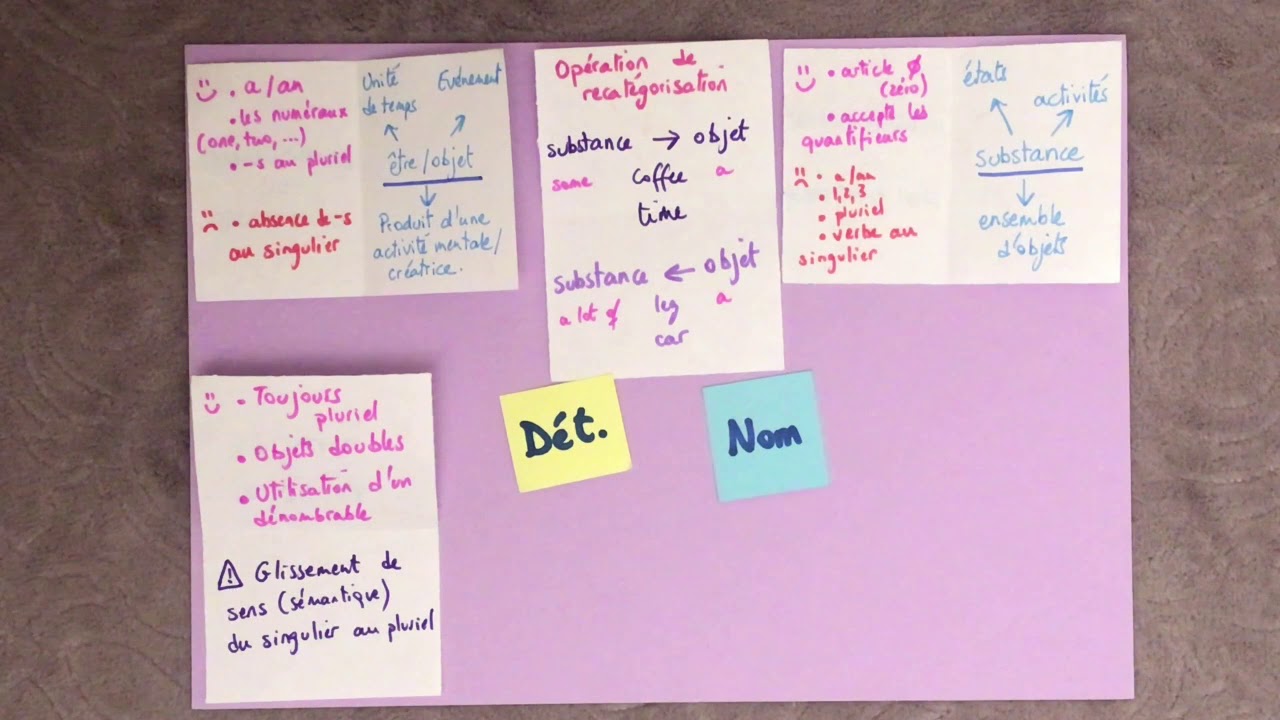 • a/an
• les numéraux
(one, two, ...)
• -s au pluriel
• absence de -s
au singulier
Unité
de temps
Evénement
être/objet
Produit d'une
activité mentale/
créatrice.
Opération de
recatégorisation
substance → objet
some coffee a
time
substance ← objet
a lot of leg a
car
• article Ø
(zéro)
• accepte les
quantifieurs
• a/an
• 1, 2, 3
• pluriel
• verbe au
singulier
états
activités
substance
ensemble
d'objets
• Toujours
pluriel
• Objets doubles
• Utilisation d'un
dénombrable
⚠ Glissement de
sens (sémantique)
du singulier au pluriel
Dét.
Nom